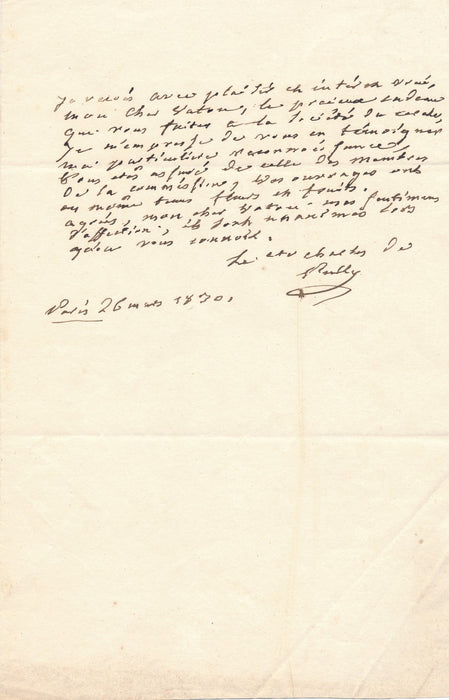 Je reçois avec plaisir et intérêt
mon cher Vatout, le précieux cadeau
que vous faites à la Société du
Je m'empresse de vous en témoigner
ma particulière reconnoissance,
Vous êtes assuré de celle des membres
De la commission, vos ouvrages ont
au même tems fleurs et fruits.
agréés, mon cher Vatout mes sentimens
D'affection, ils sont unanimes
vous connoit.
Le cte charles de
Paris 26 mars 1830.